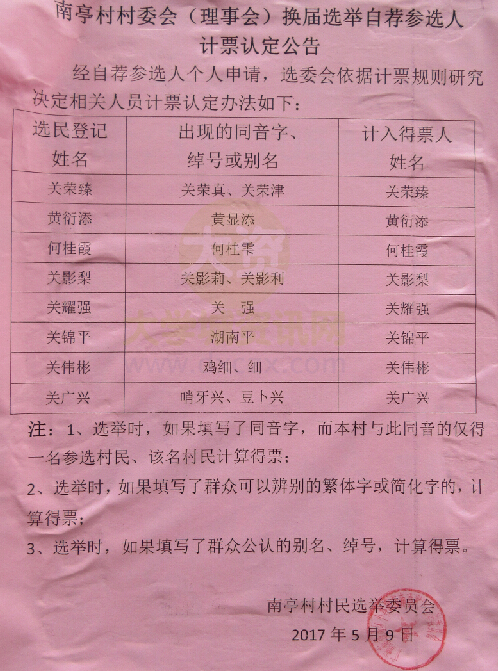 南亭村村委会（理事会）换届选举自荐参选人
计票认定公告
经自荐参选人个人申请，选委会依据计票规则研究
决定相关人员计票认定办法如下：
选民登记 出现的同音字、 计入得票人
姓名 绰号或别名 姓名
关荣臻 关荣真、关荣津 关荣臻
黄衍添 黄显添 黄衍添
何桂霞 何桂霞
关影梨 关影莉、关影利 关影梨
关耀强 关 强 关耀强
关锦平 湖南平 关锦平
关伟彬 鸡细、细 关伟彬
关广兴 哨牙兴、豆卜兴 关广兴
注：1、选举时，如果填写了同音字，而本村与此同音的仅得
一名参选村民、该名村民计算得票；
2、选举时，如果填写了群众可以辨别的繁体字或简化字的，计
算得票；
3、选举时，如果填写了群众公认的别名、绰号，计算得票。
南亭村村民选举委员会
2017 年 5 月 9 日